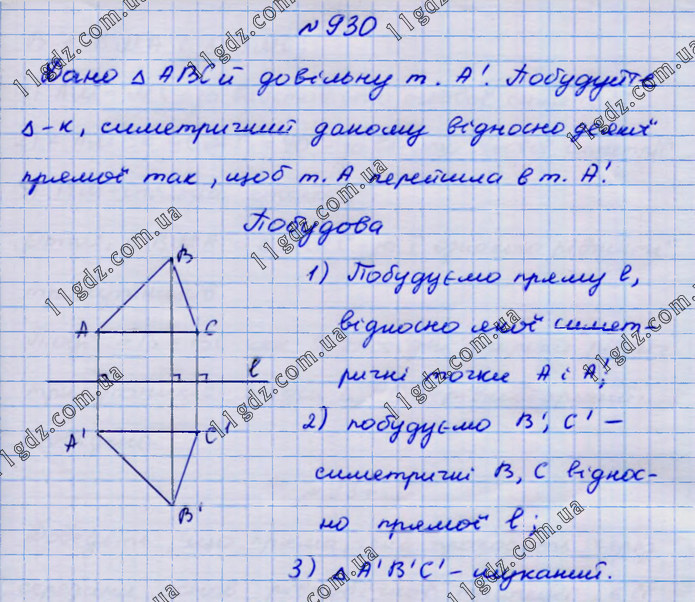 №930
Дано △ АВС й довільну т. А'. Побудуйте
△-к, симетричний даному відносно деякої
прямої так, щоб т. А перейшла в т. А'.
Побудова
1) Побудуємо пряму l,
відносно якої симет-
ричні точки А і А';
2) побудуємо В', С' –
симетричні В, С віднос-
но прямої l;
3) △ А'В'С' – шуканий.
B
A
C
l
A'
C'
B'
11gdz.com.ua
11gdz.com.ua
11gdz.com.ua
11gdz.com.ua
11gdz.com.ua
11gdz.com.ua
11gdz.com.ua
11gdz.com.ua
11gdz.com.ua
11gdz.com.ua
11gdz.com.ua